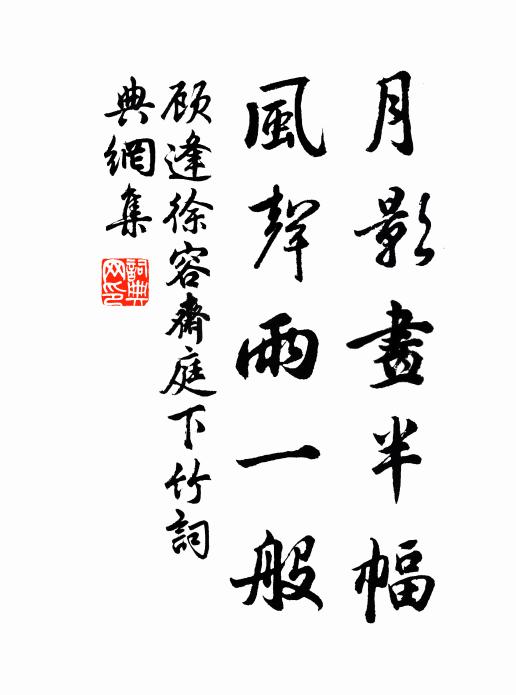 月影畫半幅
風聲雨一般
顾逢徐容齋庭下竹詞
典網集
詞典网印